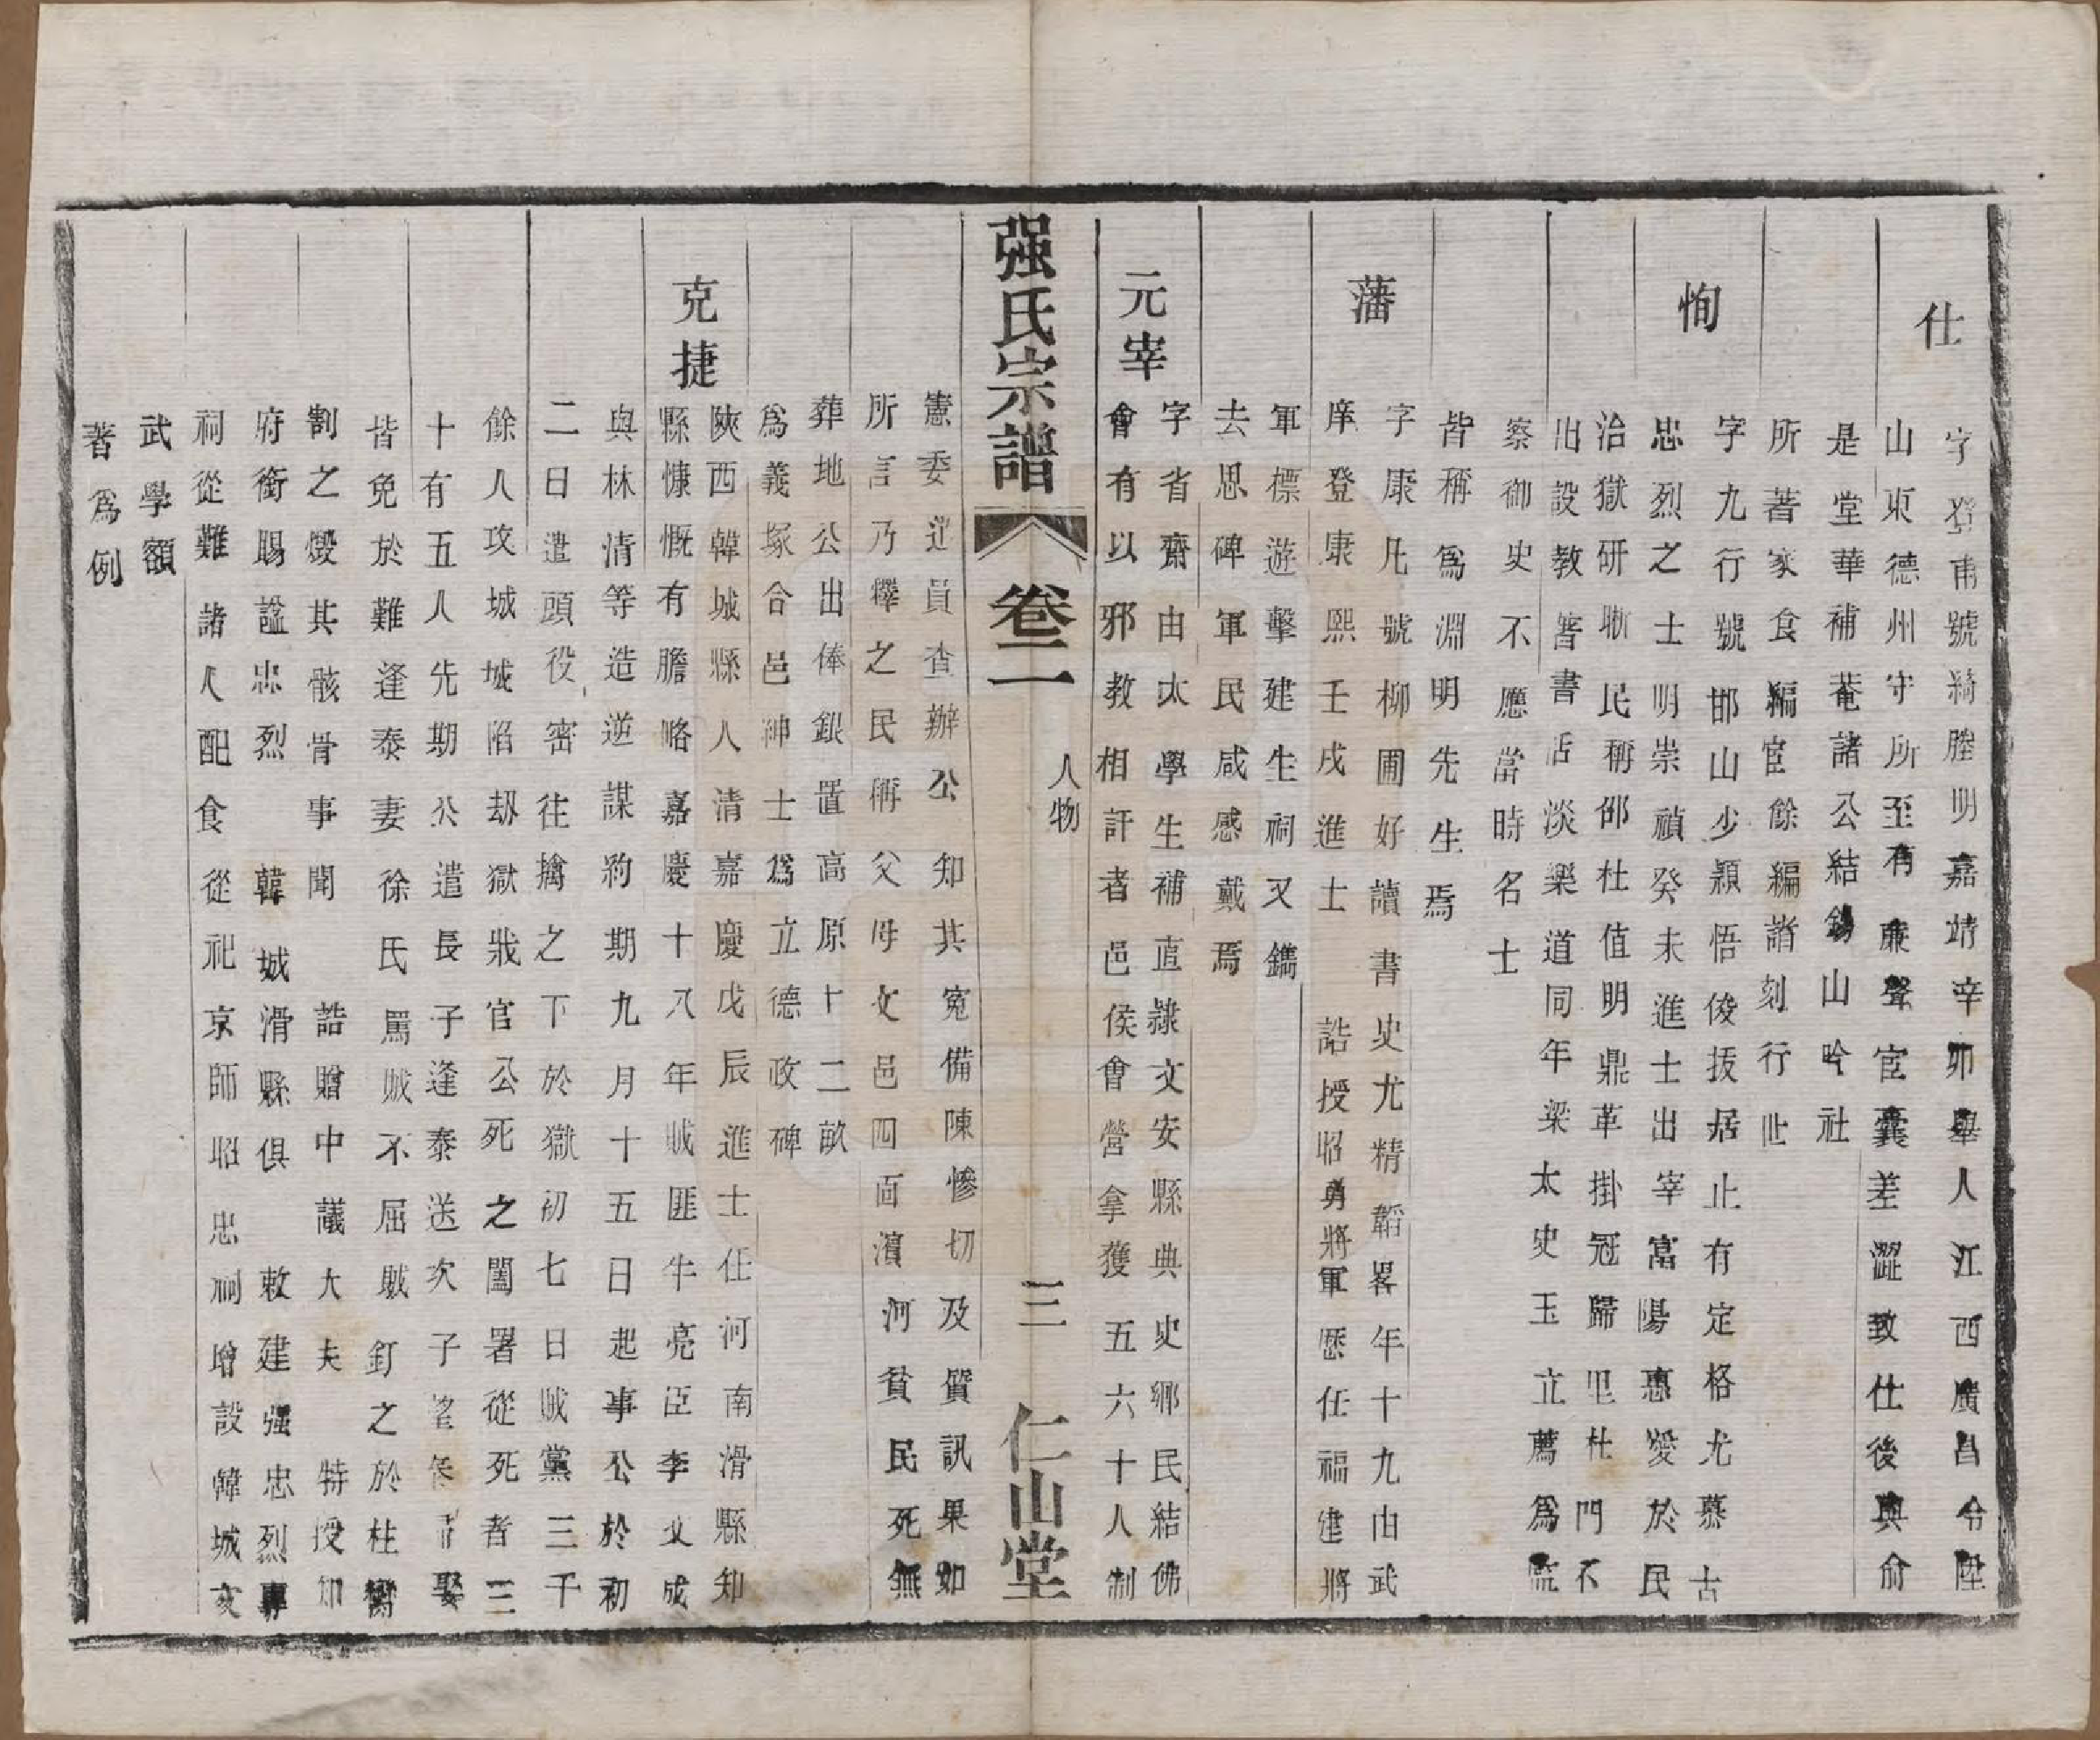 仕
字登甫號綺塍明嘉靖辛卯舉人江西廣昌令陞
山東德州守所至有廉聲宦囊差澀致仕後與俞
是堂華補菴諸公結錫山吟社
所著家食編宦餘編諸刻行世
恂
字九行號邯山少穎悟俊拔居止有定格尤慕古
忠烈之士明崇禎癸未進士出宰富陽惠愛於民
治獄研聨民稱邵杜值明鼎革掛冠歸里杜門不
出設教著書恬淡樂道同年梁太史玉立薦爲監
察御史不應當時名士
皆稱爲淵明先生焉
藩
字康凡號柳圃好讀書史尤精韜畧年十九由武
庠登康熙壬戌進士誥授昭勇將軍歷任福建將
軍標遊擊建生祠又鐫
去思碑軍民咸感戴焉
元宰
字省齋由太學生補直隷文安縣典史鄉民結佛
會有以邪教相訐者邑侯會營拿獲五六十人制
强氏宗譜 卷二 人物 三 仁山堂
憲委道員查辦公知其寃備陳慘切及質訊果如
所言乃釋之民稱父母文邑四面濵河貧民死無
葬地公出俸銀置高原十二畝
爲義塚合邑紳士爲立德政碑
克捷
陝西韓城縣人清嘉慶戊辰進士任河南滑縣知
縣慷慨有膽略嘉慶十八年賊匪牛亮臣李文成
與林清等造逆謀約期九月十五日起事公於初
二日遣頭役密往擒之下於獄初七日賊黨三千
餘人攻城城陷劫獄戕官公死之闔署從死者三
十有五人先期公遣長子逢泰送次子望 晉娶
皆免於難逢泰妻徐氏罵賊不屈賊釘之於柱臠
割之燬其骸骨事聞誥贈中議大夫特授知
府銜賜諡忠烈韓城滑縣俱敕建强忠烈專
祠從難諸人配食從祀京師昭忠祠增設韓城文
武學額
著爲例